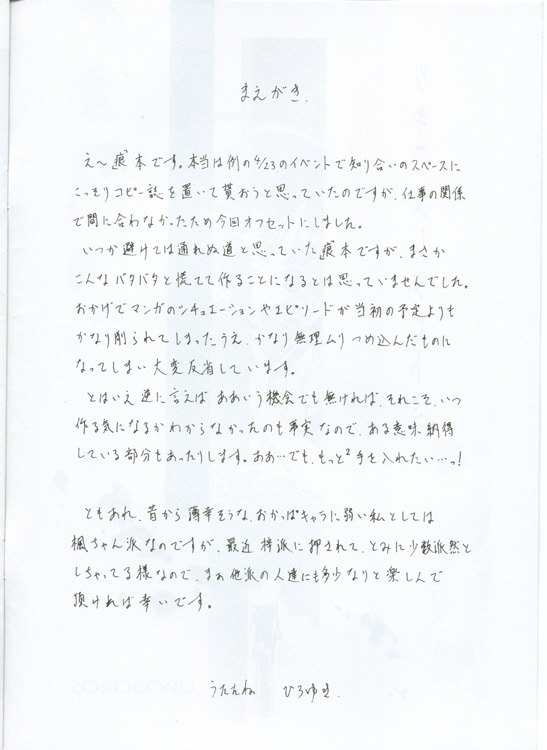 まえがき.
え〜痕本です。本当は例の4/23のイベントで知り合いのスペースに
こっそりコピー誌を置いて貰おうと思っていたのですが、仕事の関係
で間に合わなかったため今回オフセットにしました。
いつか避けては通れぬ道と思っていた痕本ですが、まさか
こんなバタバタと慌てて作ることになるとは思っていませんでした。
おかげでマンガのシチュエーションやエピソードが当初の予定よりも
かなり削られてしまったうえ、かなり無理ムリつめ込んだものに
なってしまい大変反省しています。
とはいえ逆に言えば ああいう機会でも無ければ、それこそ、いつ
作る気になるかわからなかったのも事実なので、ある意味納得
している部分もあったりします。ああ…でも、もっと²手を入れたい…っ!
ともあれ、昔から薄幸そうな、おかっぱキャラに弱い私としては
楓ちゃん派なのですが、最近 梓派に押されて、とみに少数派然と
しちゃってる様なので、まぁ他派の人達にも多少なりと楽しんで
頂ければ幸いです。
うたたね ひろゆき.
UROBOROS